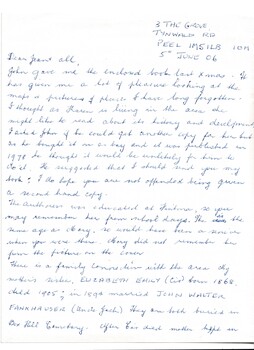 3 THE GROVE
TYNWALD RD
PEEL IM5 1LB IOM
5th JUNE 06
Dear Jean & all,
John gave me the enclosed book last Xmas. It
has given me a lot of pleasure looking at the
maps & pictures of places I have long forgotten.
I thought as Karen is living in the area she
might like to read about its history and development
I asked John if he could get another copy for her but
as he bought it on e-bay and it was published in
1978 he thought it would be unlikely for him to
do it. He suggested that I should send you my
book. I do hope you are not offended being given
a second hand copy.
The author was educated at, so you
may remember her from school days. She is the
same age as Mary, so would have been a senior
when you were there. Mary did not remember her
from the picture on the cover
There is a family connection with the area. My
mother's sister, ELIZABETH EMILY (Cis) born 1868
died 1905? in 1894 married JOHN WALTER
PANKHAUSER (Uncle Jack) They are both buried in
Cemetery. After Cis died mother kept in